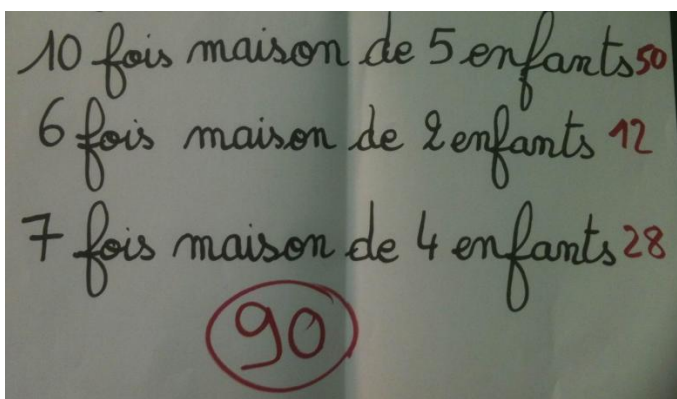 10 fois maison de 5 enfants 50
6 fois maison de 2 enfants 12
7 fois maison de 4 enfants 28
90